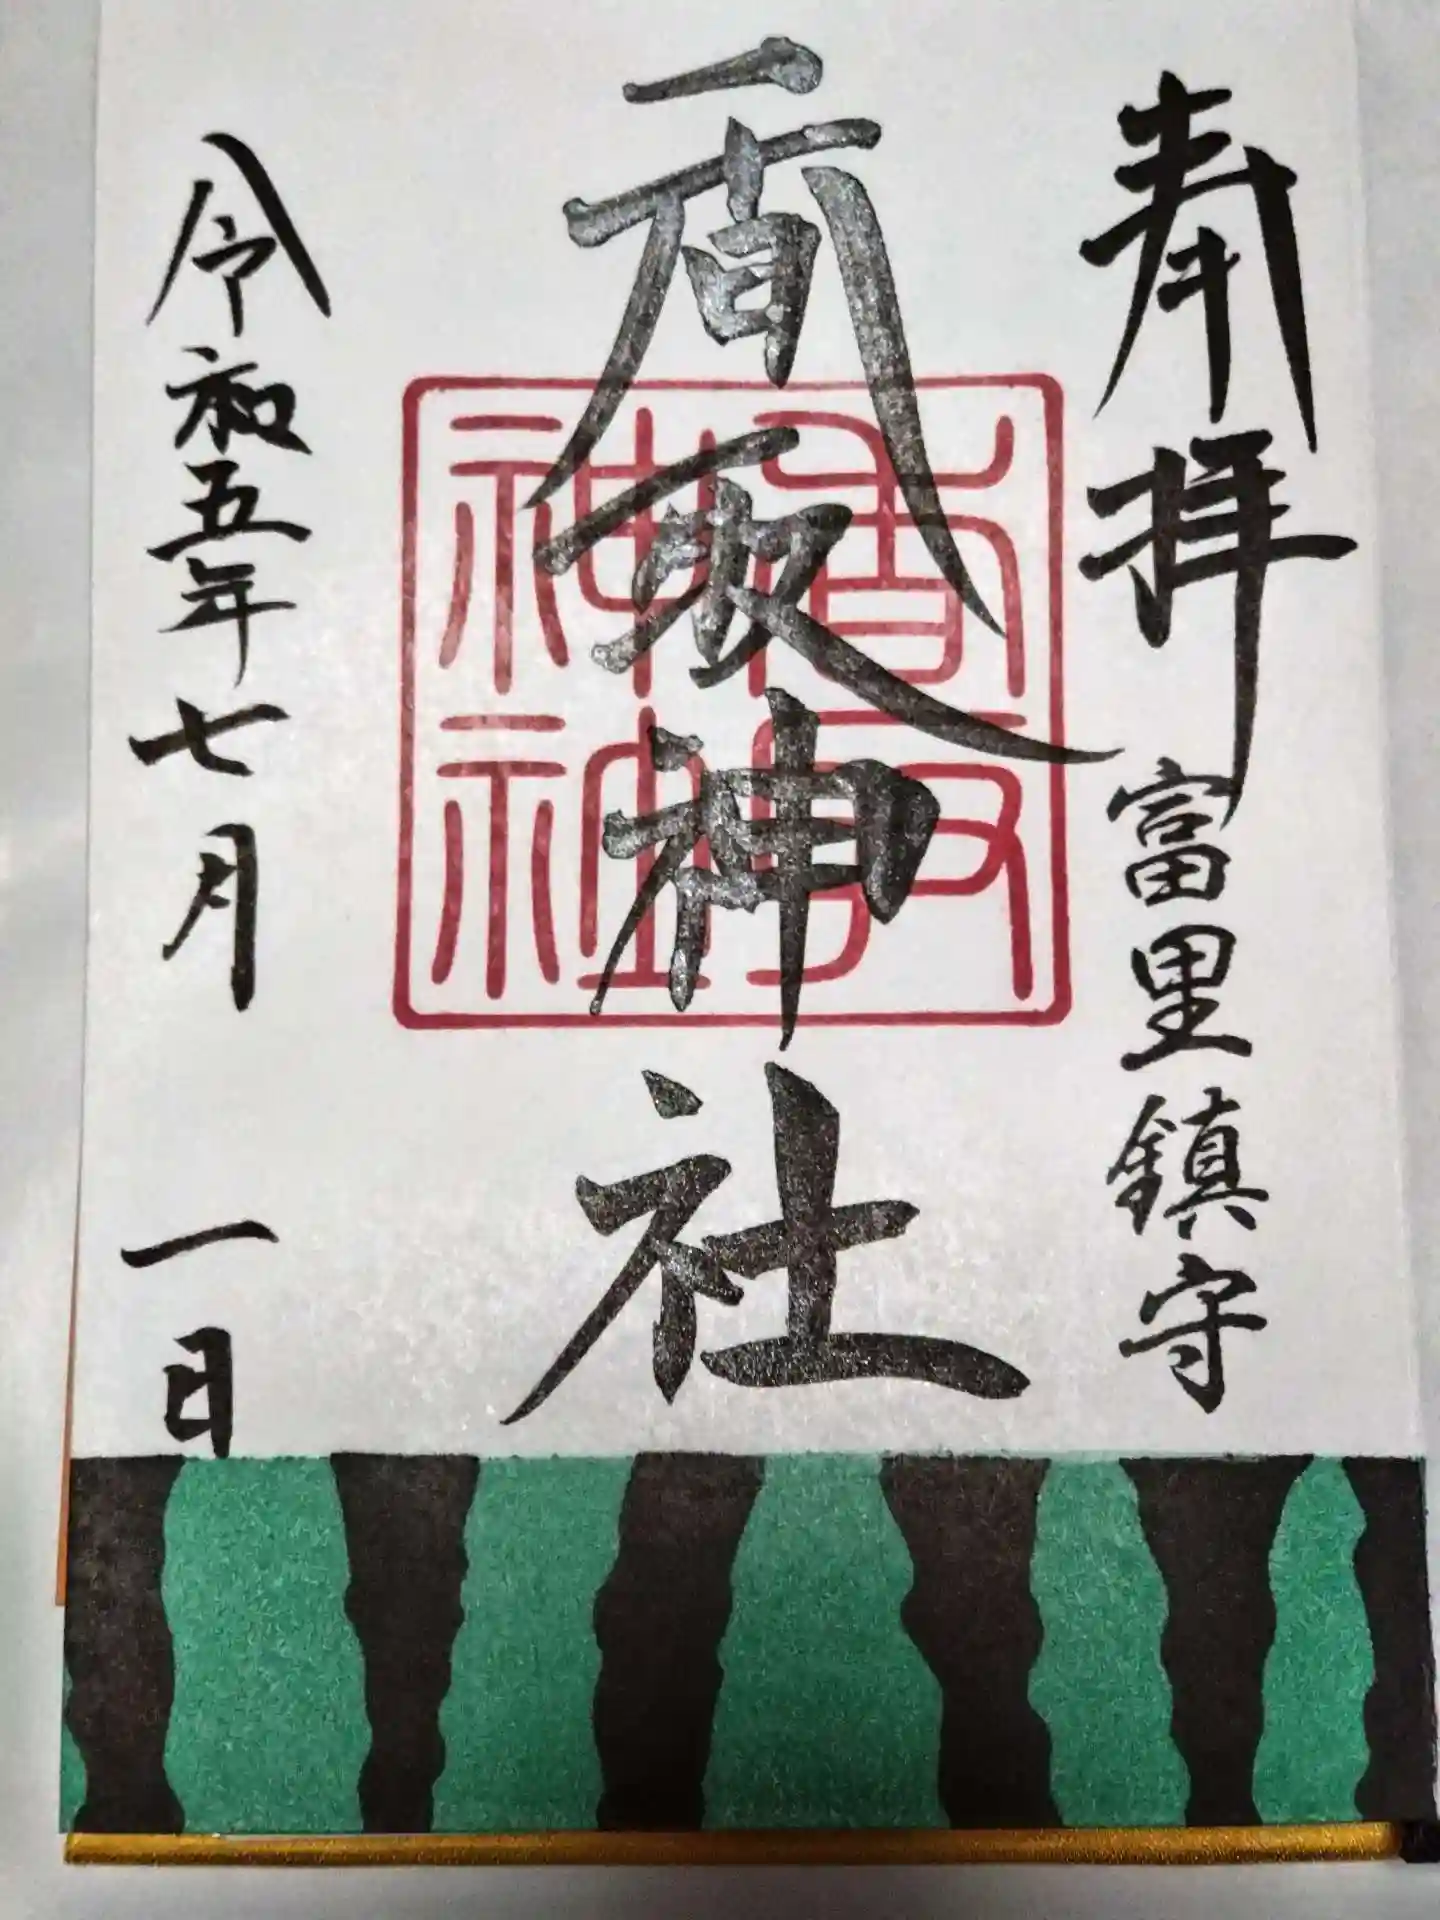 奉拝
富里鎮守
香取神社
香取
神社
令和五年七月
一日